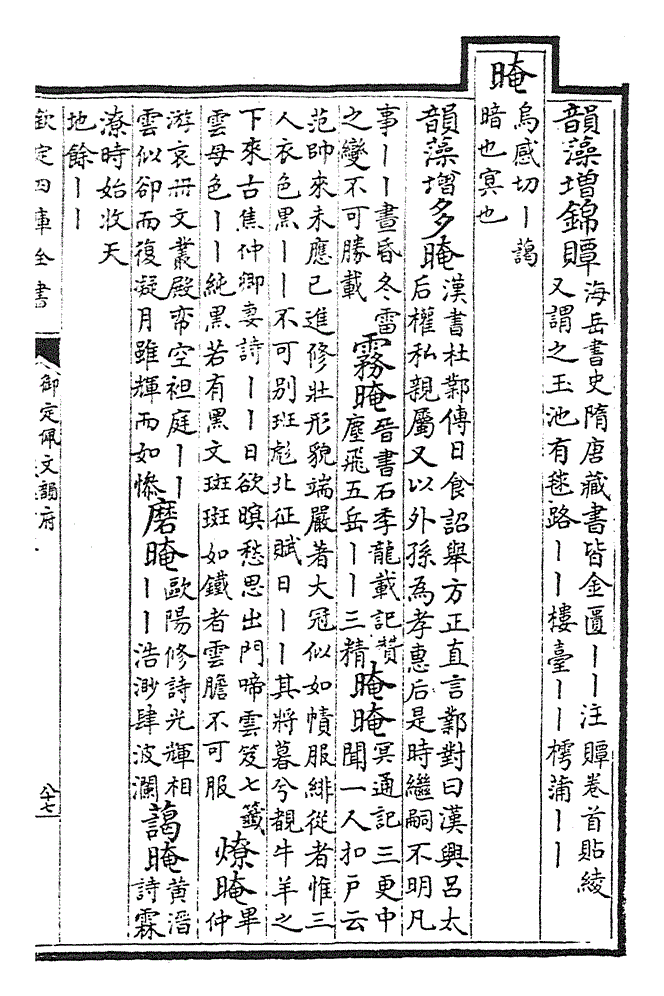 韻藻增錦贉
海岳書史隋唐藏書皆金匱丨丨注贉卷首貼綾
又謂之玉池有毬路丨丨樓臺丨丨樗蒲丨丨
晻
烏感切丨藹
暗也冥也
韻藻增多晻
漢書杜鄴傳日食詔舉方正直言鄴對曰漢興呂太
后權私親屬又以外孫為孝惠后是時繼嗣不明凡
事丨丨晝昏冬雷
之變不可勝載
霧晻
晉書石季龍載記贊
塵飛五岳丨丨三精
晻晻
冥通記三更中
聞一人扣戶云
范帥來未應已進修壯形貌端嚴著大冠似如幘服緋從者惟三
人衣色黑丨丨不可別班彪北征賦日丨丨其將暮兮覩牛羊之
下來古焦仲卿妻詩丨丨日欲暝愁思出門啼雲笈七籤
雲母色丨丨純黑若有黑文斑斑如鐵者雲膽不可服
燎晻
畢
仲
游哀冊文叢殿帟空袒庭丨丨
雲似卻而復凝月雖輝而如慘
磨晻
歐陽修詩光輝相
丨丨浩渺肆波瀾
藹晻
黄溍
詩霖
潦時始收天
地餘丨丨
欽定四庫全書
御定佩文韻府